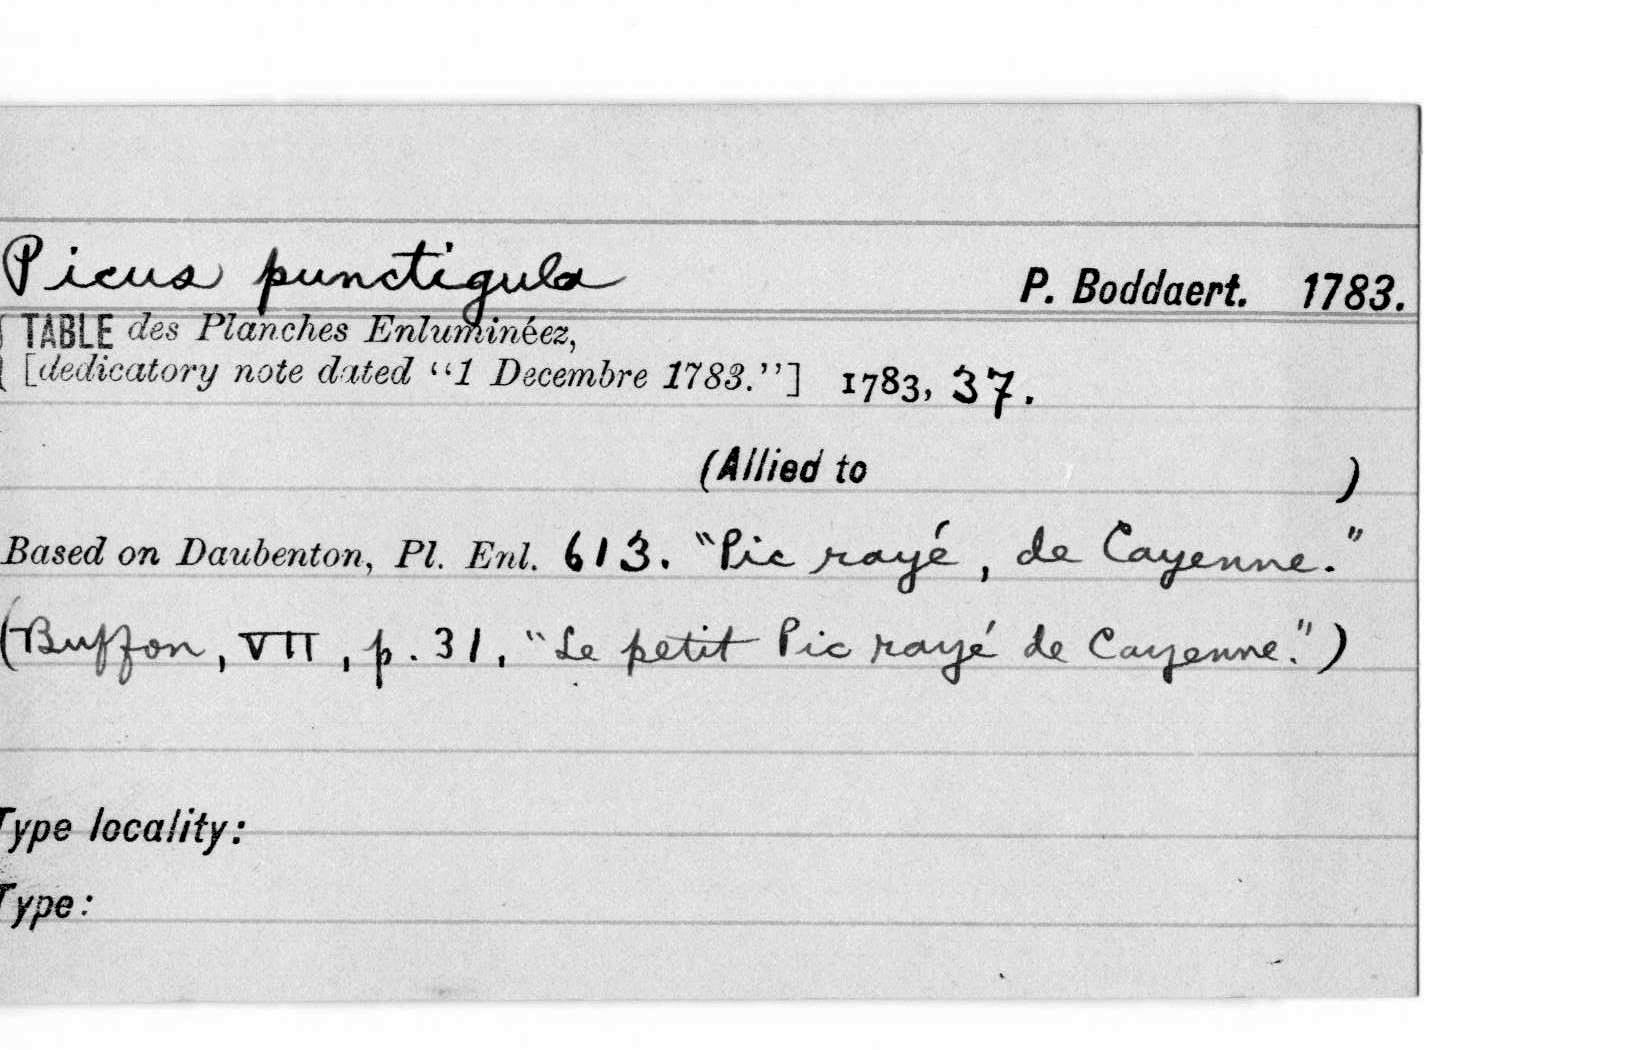 Picus punctigula P. Boddaert. 1783.
TABLE des Planches Enluminéez,
[dedicatory note dated “1 Decembre 1783.”] 1783, 37.
(Allied to )
Based on Daubenton, Pl. Enl. 613. “Pic rayé, de Cayenne.”
(Buffon, VII, p. 31, “Le petit Pic rayé de Cayenne.”)
Type locality:
Type: